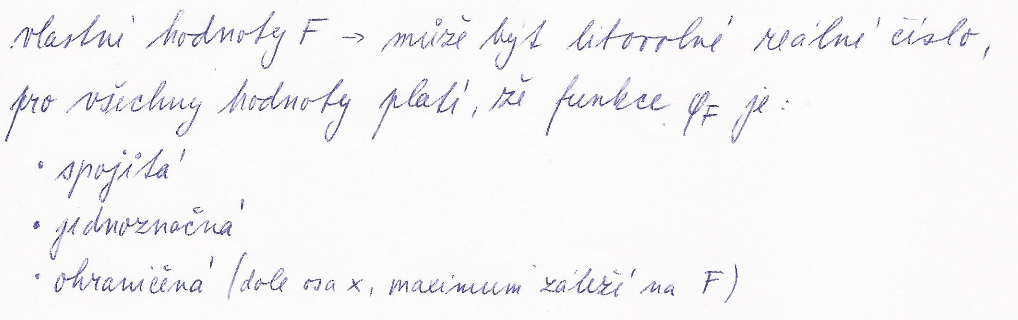 vlastní hodnoty F → může být libovolné reálné číslo,
pro všechny hodnoty platí, že funkce φ_F je:
• spojitá
• jednoznačná
• ohraničená (dole osa x, maximum záleží na F)